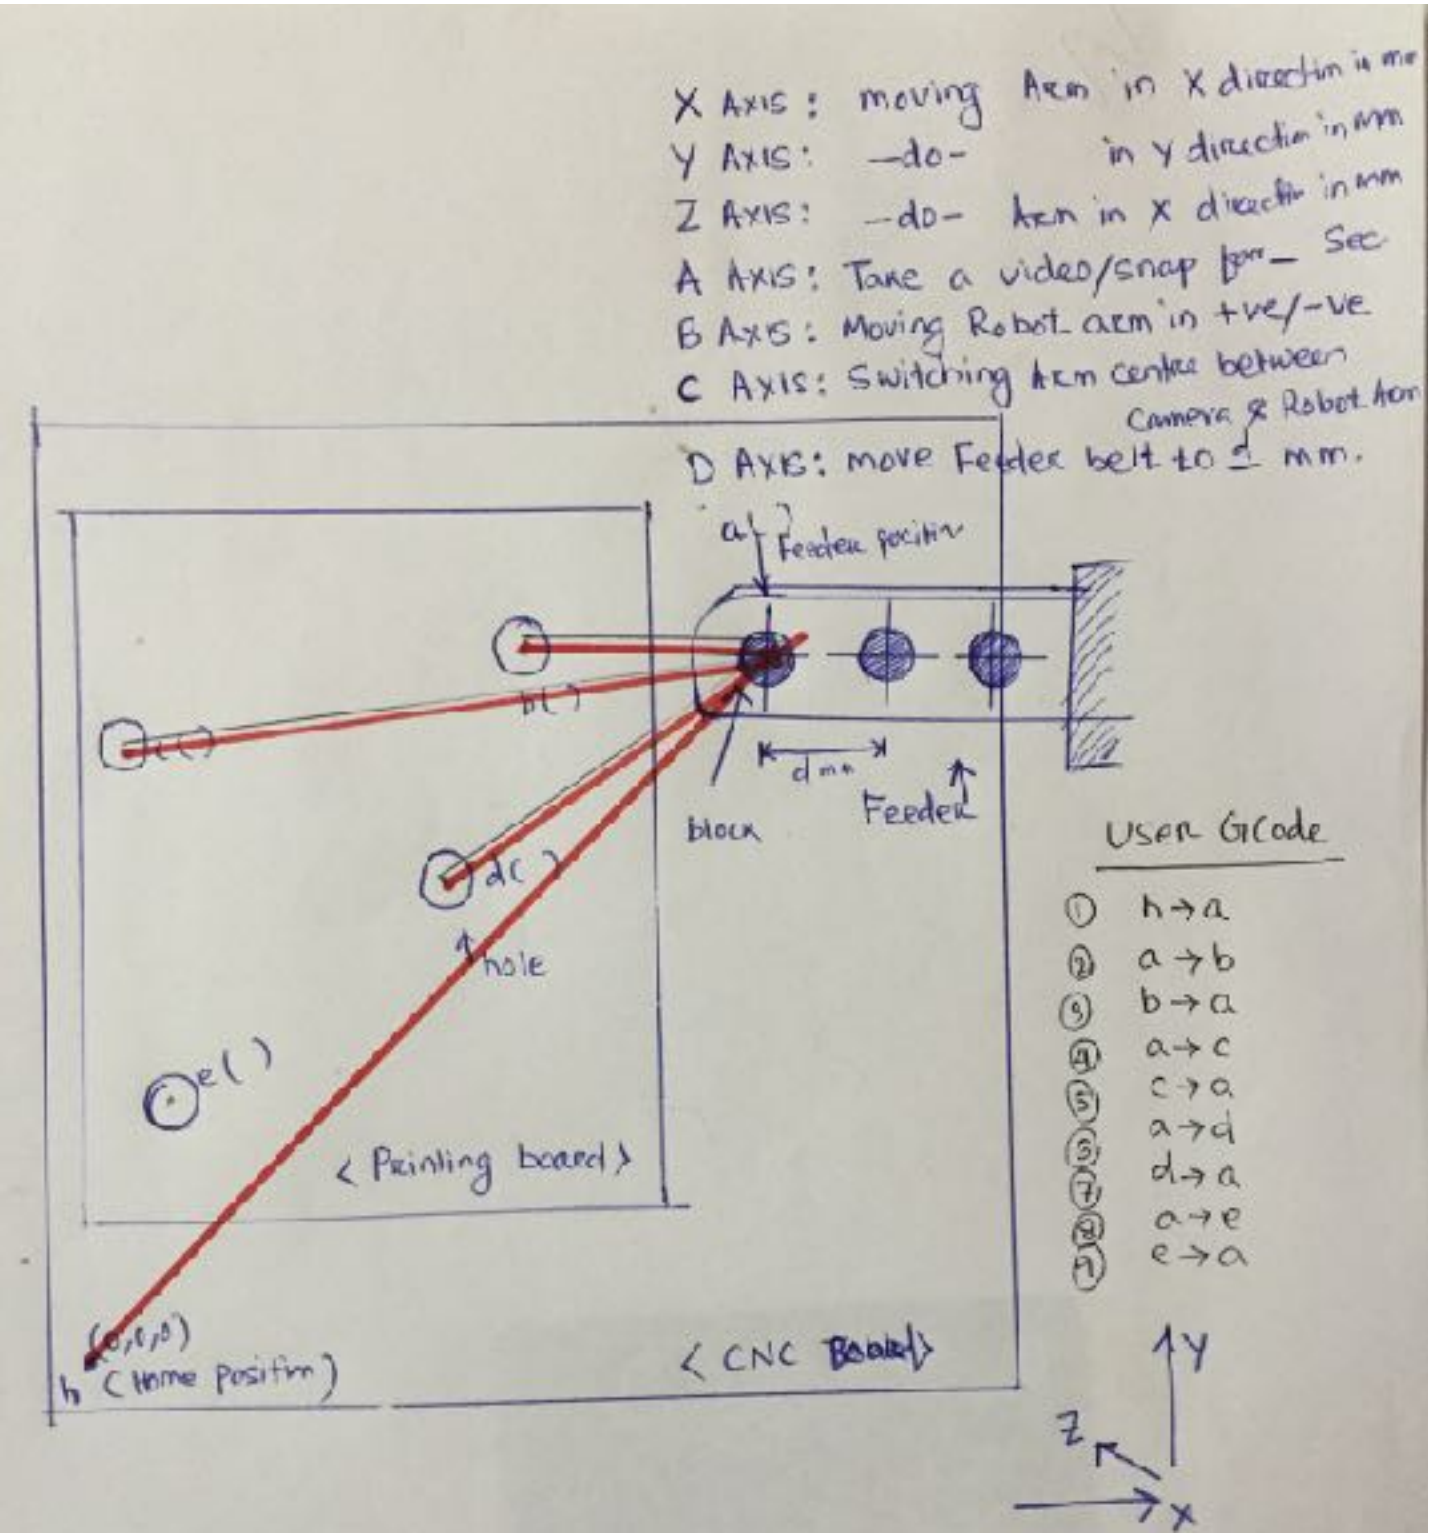 X AXIS: moving Arm in X direction in mm
Y AXIS: -do- in Y direction in mm
Z AXIS: -do- Arm in X direction in mm
A AXIS: Take a video/snap for _ Sec
B AXIS: Moving Robot arm in +ve/-ve
C AXIS: Switching Arm centre between
Camera & Robot Arm
D AXIS: move Feeder belt to d mm.
a( )
Feeder position
b( )
c( )
d mm
Feeder
block
d( )
hole
e( )
<Printing board>
User GCode
① h→a
② a→b
③ b→a
④ a→c
⑤ c→a
⑥ a→d
⑦ d→a
⑧ a→e
⑨ e→a
(0,0,0)
h (Home Position)
<CNC Board>
Y
Z
X